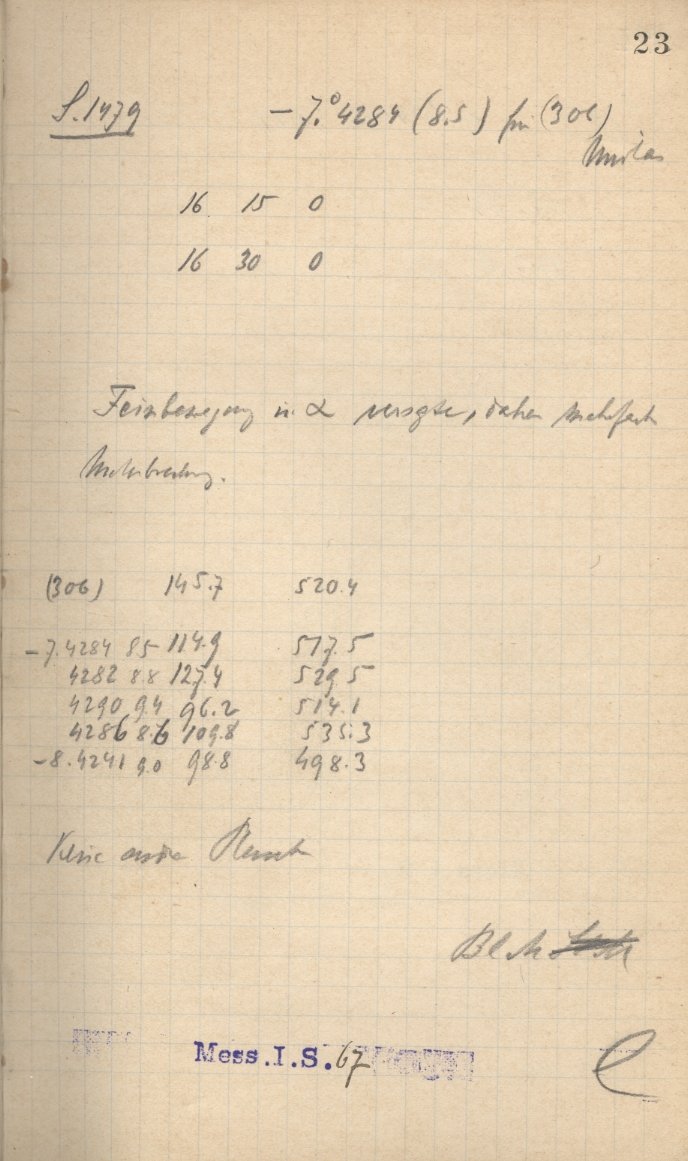 23
S.1479 -7.°4284 (8.5) für (306)
Unitas
16 15 0
16 30 0
Feinbewegung in α versagte, daher mehrfach
(306) 145.7 520.4
-7.4284 8.5 114.9 517.5
4282 8.8 127.4 529.5
4290 9.4 96.2 514.1
4286 8.6 109.8 535.3
-8.4241 9.0 98.8 498.3
Keine andre Planet
Mess.I.S.67